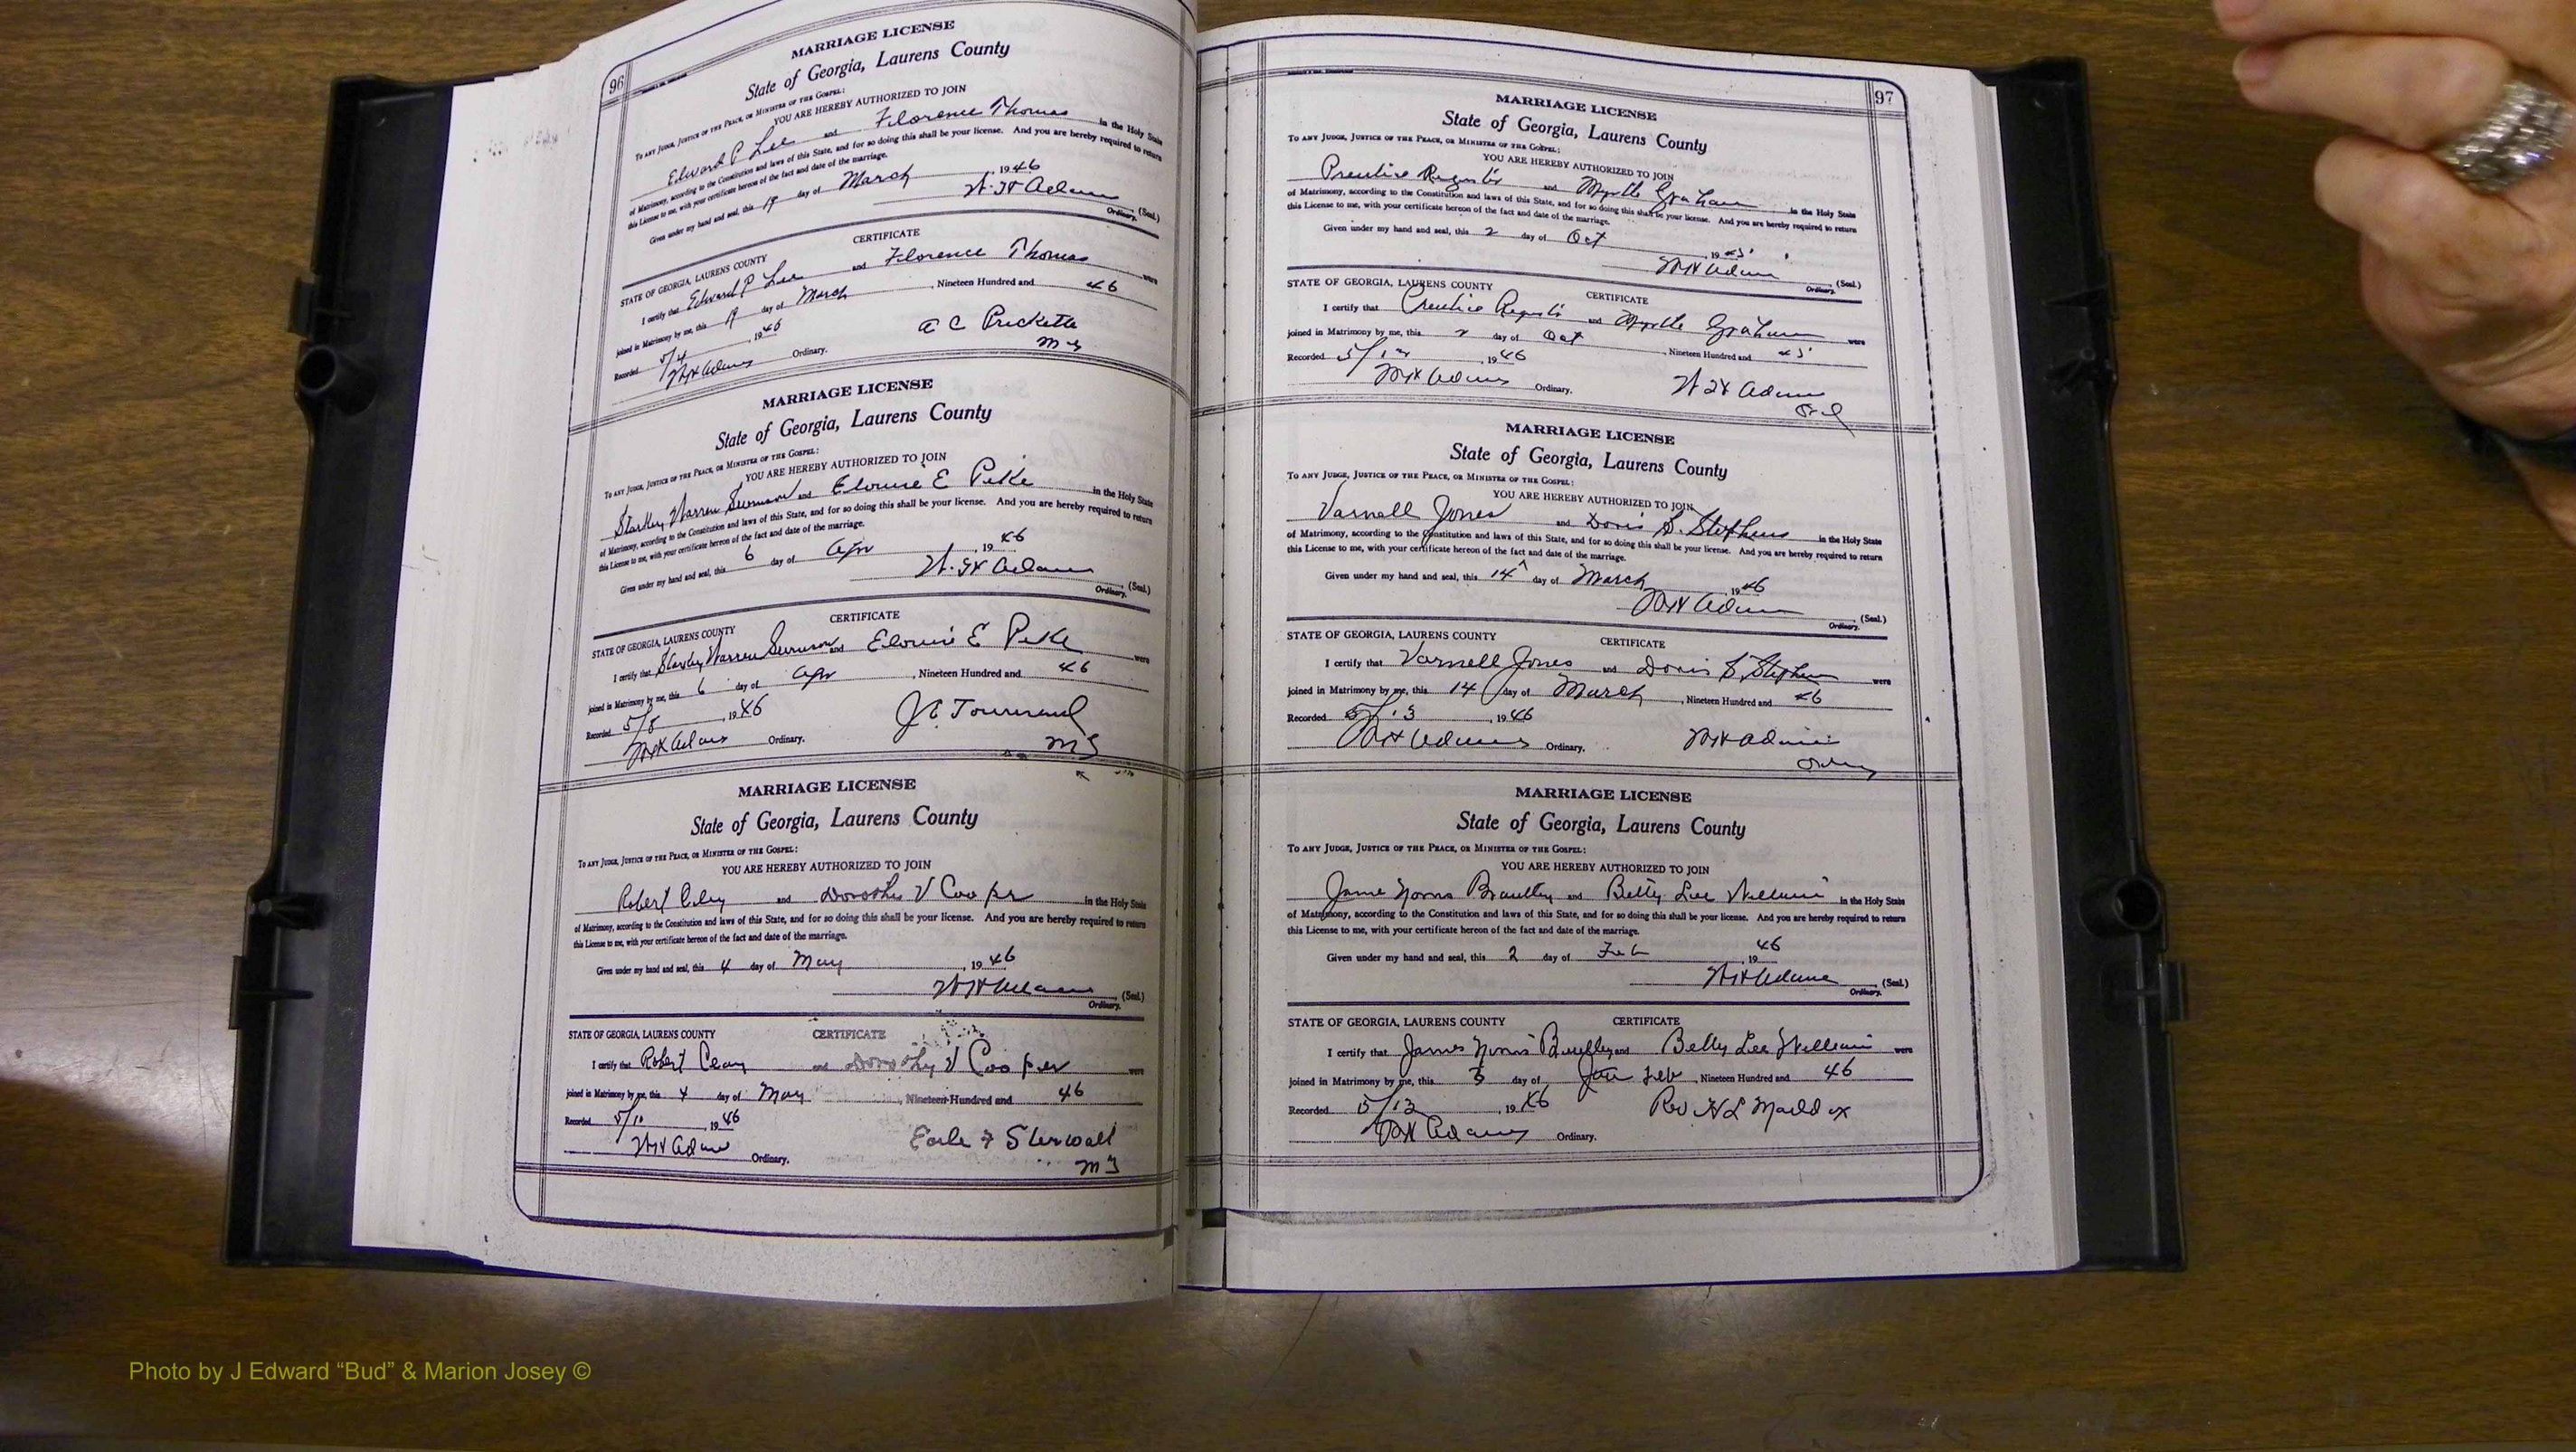 96
MARRIAGE LICENSE
State of Georgia, Laurens County
TO ANY JUDGE, JUSTICE OF THE PEACE, OR MINISTER OF THE GOSPEL:
YOU ARE HEREBY AUTHORIZED TO JOIN
Edward P Lee and Florence Thomas in the Holy State
of Matrimony, according to the Constitution and laws of this State, and for so doing this shall be your license. And you are hereby required to return
this License to me, with your certificate hereon of the fact and date of the marriage.
Given under my hand and seal, this 19 day of March, 1946
W. H Adams (Seal.)
Ordinary.
CERTIFICATE
STATE OF GEORGIA, LAURENS COUNTY
I certify that Edward P Lee and Florence Thomas were
joined in Matrimony by me, this 19 day of March, Nineteen Hundred and 46
Recorded 5/4, 1946
A C Pricketts
W H Adams Ordinary.
MARRIAGE LICENSE
State of Georgia, Laurens County
TO ANY JUDGE, JUSTICE OF THE PEACE, OR MINISTER OF THE GOSPEL:
YOU ARE HEREBY AUTHORIZED TO JOIN
Warren and E Pike in the Holy State
of Matrimony, according to the Constitution and laws of this State, and for so doing this shall be your license. And you are hereby required to return
this License to me, with your certificate hereon of the fact and date of the marriage.
Given under my hand and seal, this 6 day of Apr, 1946
W. H Adams (Seal.)
Ordinary.
CERTIFICATE
STATE OF GEORGIA, LAURENS COUNTY
I certify that Warren and E Pike were
joined in Matrimony by me, this 6 day of Apr, Nineteen Hundred and 46
Recorded 5/8, 1946
J E Townsend
W H Adams Ordinary.
MG
MARRIAGE LICENSE
State of Georgia, Laurens County
TO ANY JUDGE, JUSTICE OF THE PEACE, OR MINISTER OF THE GOSPEL:
YOU ARE HEREBY AUTHORIZED TO JOIN
Robert and Dorothy V Cooper in the Holy State
of Matrimony, according to the Constitution and laws of this State, and for so doing this shall be your license. And you are hereby required to return
this License to me, with your certificate hereon of the fact and date of the marriage.
Given under my hand and seal, this 4 day of May, 1946
W H Adams (Seal.)
Ordinary.
STATE OF GEORGIA, LAURENS COUNTY CERTIFICATE
I certify that Robert and Dorothy V Cooper were
joined in Matrimony by me, this 4 day of May, Nineteen Hundred and 46
Recorded 5/10, 1946
W H Adams Ordinary.
Earle F
97
MARRIAGE LICENSE
State of Georgia, Laurens County
TO ANY JUDGE, JUSTICE OF THE PEACE, OR MINISTER OF THE GOSPEL:
YOU ARE HEREBY AUTHORIZED TO JOIN
Prentice Register and Myrtle Graham in the Holy State
of Matrimony, according to the Constitution and laws of this State, and for so doing this shall be your license. And you are hereby required to return
this License to me, with your certificate hereon of the fact and date of the marriage.
Given under my hand and seal, this 2 day of Oct 1945
W H Adams (Seal.)
Ordinary.
STATE OF GEORGIA, LAURENS COUNTY CERTIFICATE
I certify that Prentice Register and Myrtle Graham were
joined in Matrimony by me, this 2 day of Oct, Nineteen Hundred and 45
Recorded 5/, 1946
W H Adams Ordinary.
W H Adams
Ord
MARRIAGE LICENSE
State of Georgia, Laurens County
TO ANY JUDGE, JUSTICE OF THE PEACE, OR MINISTER OF THE GOSPEL:
YOU ARE HEREBY AUTHORIZED TO JOIN
Varnell Jones and Doris S. Stephens in the Holy State
of Matrimony, according to the Constitution and laws of this State, and for so doing this shall be your license. And you are hereby required to return
this License to me, with your certificate hereon of the fact and date of the marriage.
Given under my hand and seal, this 14 day of March, 1946
W H Adams (Seal.)
Ordinary.
STATE OF GEORGIA, LAURENS COUNTY CERTIFICATE
I certify that Varnell Jones and Doris S. Stephens were
joined in Matrimony by me, this 14 day of March, Nineteen Hundred and 46
Recorded 5/13, 1946
W H Adams Ordinary.
W H Adams
MARRIAGE LICENSE
State of Georgia, Laurens County
TO ANY JUDGE, JUSTICE OF THE PEACE, OR MINISTER OF THE GOSPEL:
YOU ARE HEREBY AUTHORIZED TO JOIN
Jame Norris Brantley and Betty Lee William in the Holy State
of Matrimony, according to the Constitution and laws of this State, and for so doing this shall be your license. And you are hereby required to return
this License to me, with your certificate hereon of the fact and date of the marriage.
Given under my hand and seal, this 2 day of Feb, 1946
W H Adams (Seal.)
Ordinary.
STATE OF GEORGIA, LAURENS COUNTY CERTIFICATE
I certify that James Norris Brantley and Betty Lee William were
joined in Matrimony by me, this 3 day of Feb, Nineteen Hundred and 46
Recorded 5/13, 1946
Rev H L Maddox
W H Adams Ordinary.
Photo by J Edward “Bud” & Marion Josey ©